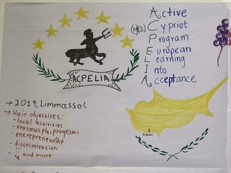 Active
Cypriot
Program
European
Learning
Into
Acceptance
ACPELIA
→ 2019 Limmassol
→ Main objectives:
- local activities
- erasmus plus programs
- entrepreneurship
- discrimination
- and more